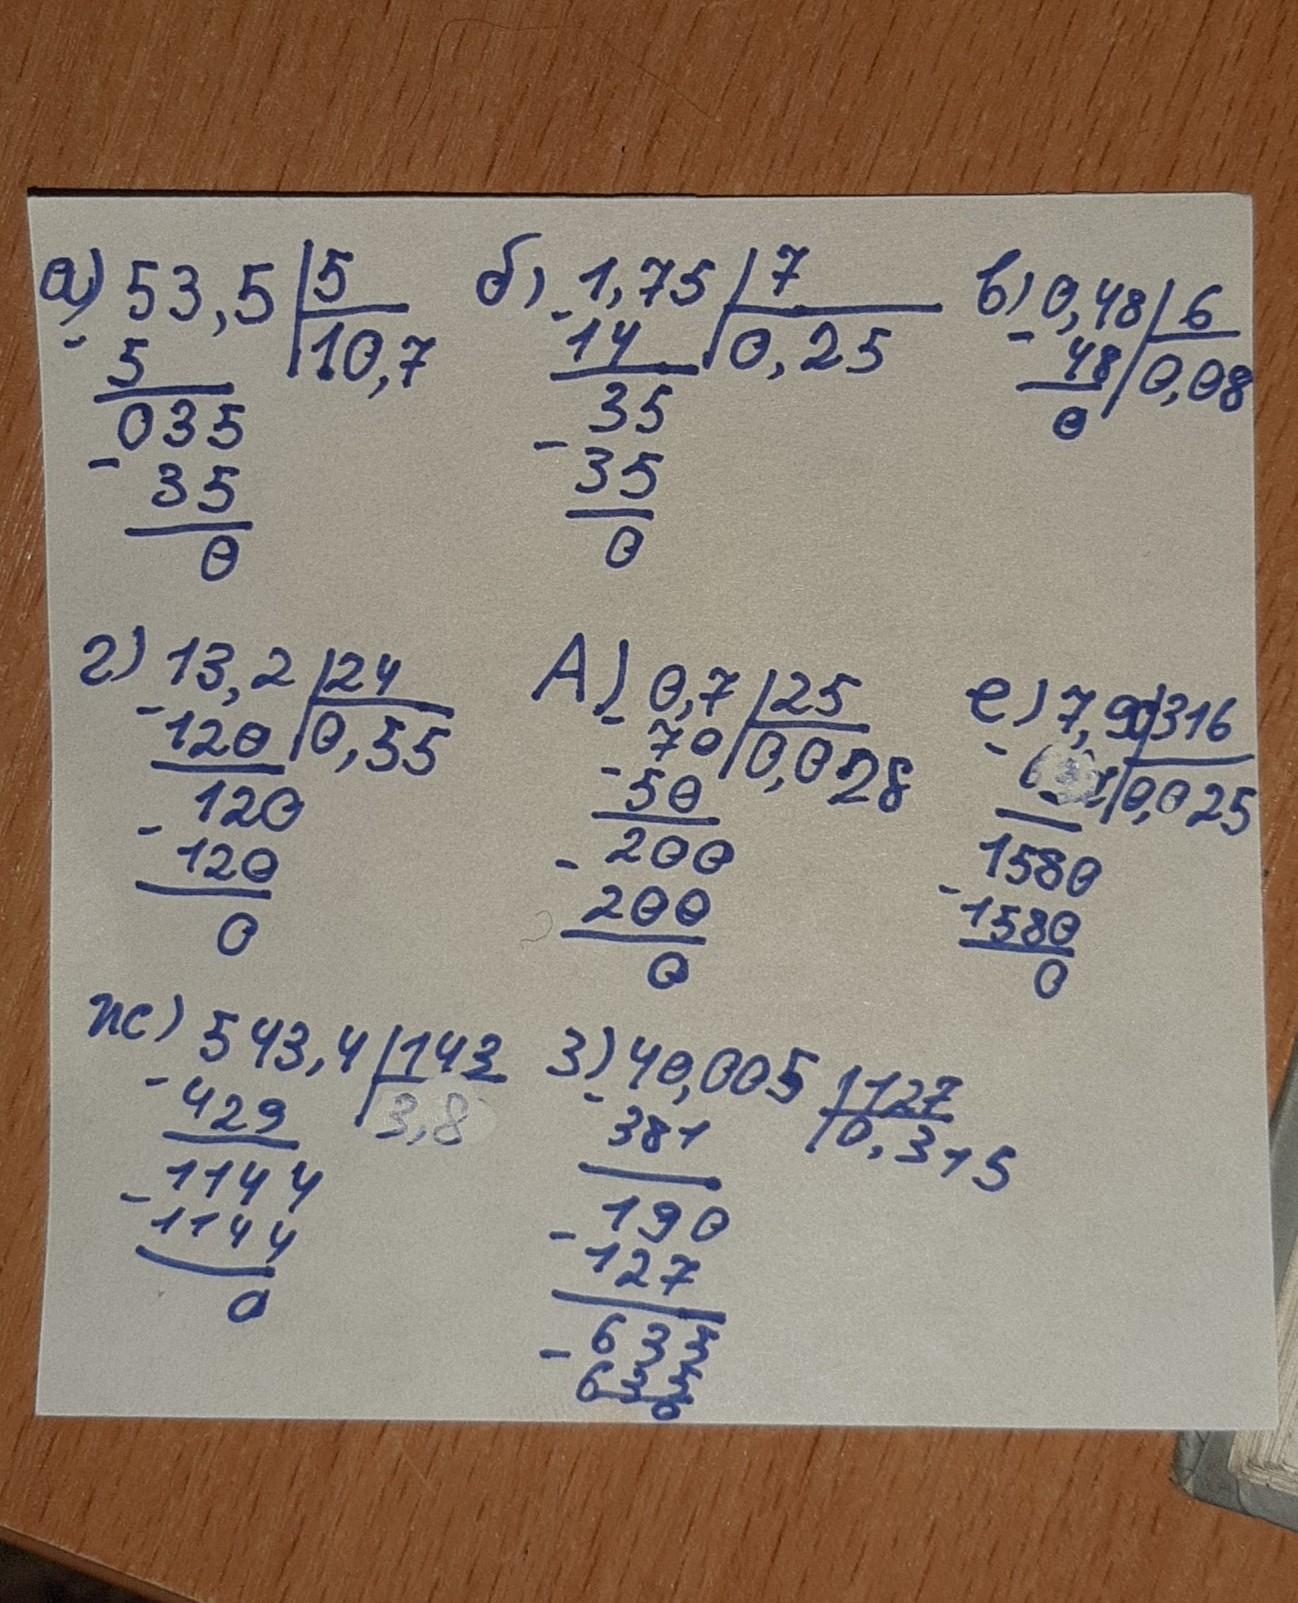 а) 53,5 | 5
- 5 | 10,7
035
- 35
0
б) 1,75 | 7
- 14 | 0,25
35
- 35
0
в) 0,48 | 6
- 48 | 0,08
0
г) 13,2 | 24
- 120 | 0,55
120
- 120
0
Д) 0,7 | 25
- 70 | 0,028
- 50
200
- 200
0
е) 7,90 | 316
- | 0,025
1580
- 1580
0
ж) 543,4 | 143
- 429 | 3,8
1144
- 1144
0
з) 40,005 | 127
- 381 | 0,315
190
- 127
635
- 635
0